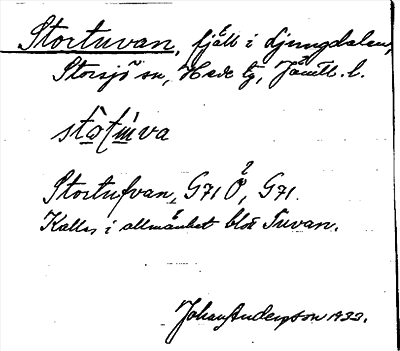 Stortuvan, fjäll i Ljungdalen,
Storsjö sn, Hede tg, Jämtl. l.
Stortufvan, G71 Ö, G71.
?
Kallas i allmänhet blott Tuvan.
Johan Anderson 1933.